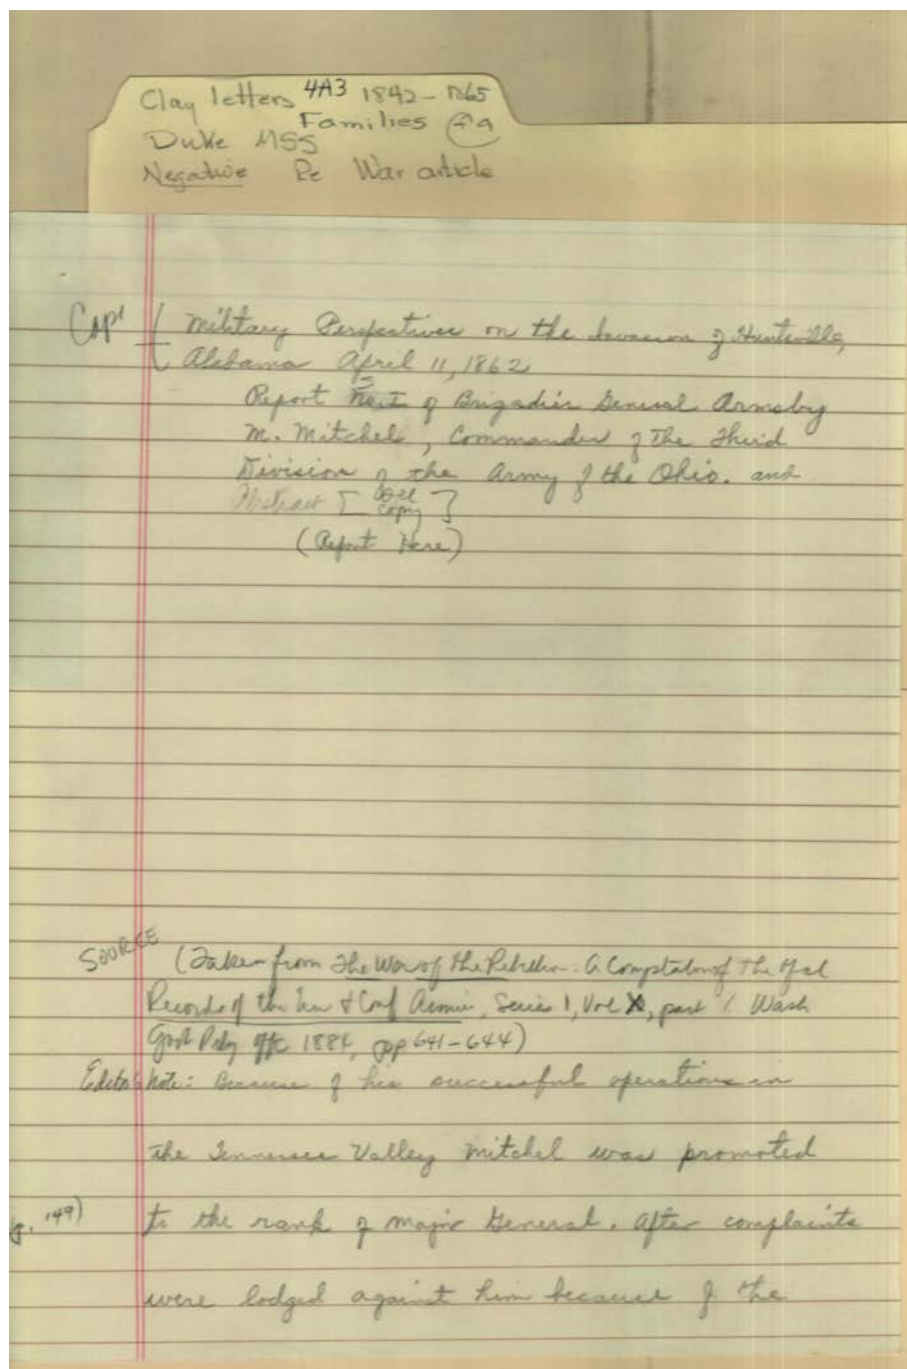 Clay letters 4A3 1842-1865
Families
Duke MSS
Negative Re War article
Cap'
Military Perspectives on the Invasion of Huntsville,
Alabama April 11, 1862
Reports of Brigadier General Ormsby
M. Mitchel, Commander of The Third
Division of the Army of the Ohio. and
Abstract [ copy ]
(Report Here)
Source
(Taken from The War of the Rebellion: A Compilation of The Ofcl
Records of the Un & Conf Armies, Series 1, Vol X, part 1 Wash
Govt Prtg Offc 1884, pp 641-644)
Editor's Note: Because of his successful operations in
the Tennessee Valley Mitchel was promoted
'49)
to the rank of Major General. After complaints
were lodged against him because of the